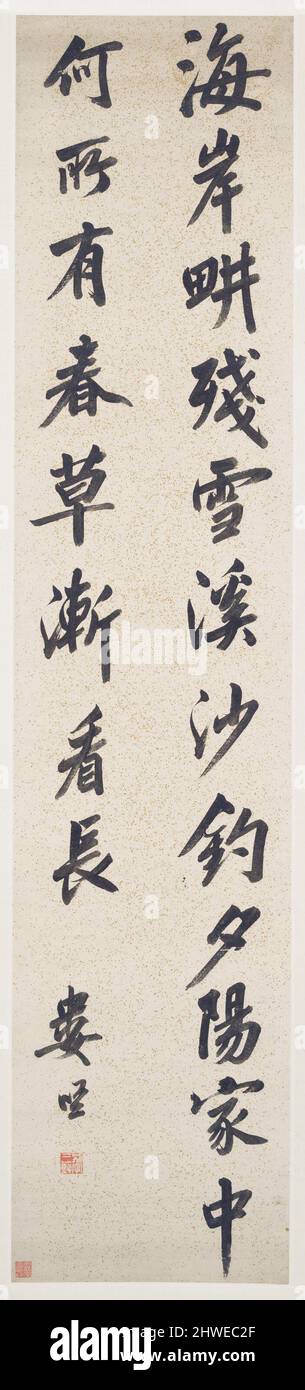 海岸畊残雪溪沙釣夕陽家中
何所有春草漸看長
婁堅
alamy
Image ID: 2HWEC2F
www.alamy.com